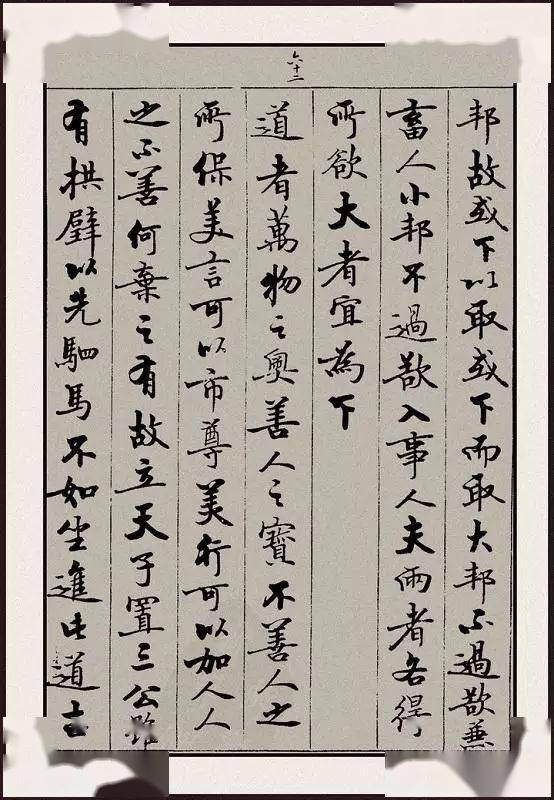 六十二
邦故或下以取或下而取大邦不過欲兼
畜人小邦不過欲入事人夫兩者各得
所欲大者宜為下
道者萬物之奧善人之寶不善人之
所保美言可以市尊美行可以加人人
之不善何棄之有故立天子置三公雖
有拱璧以先駟馬不如坐進此道古